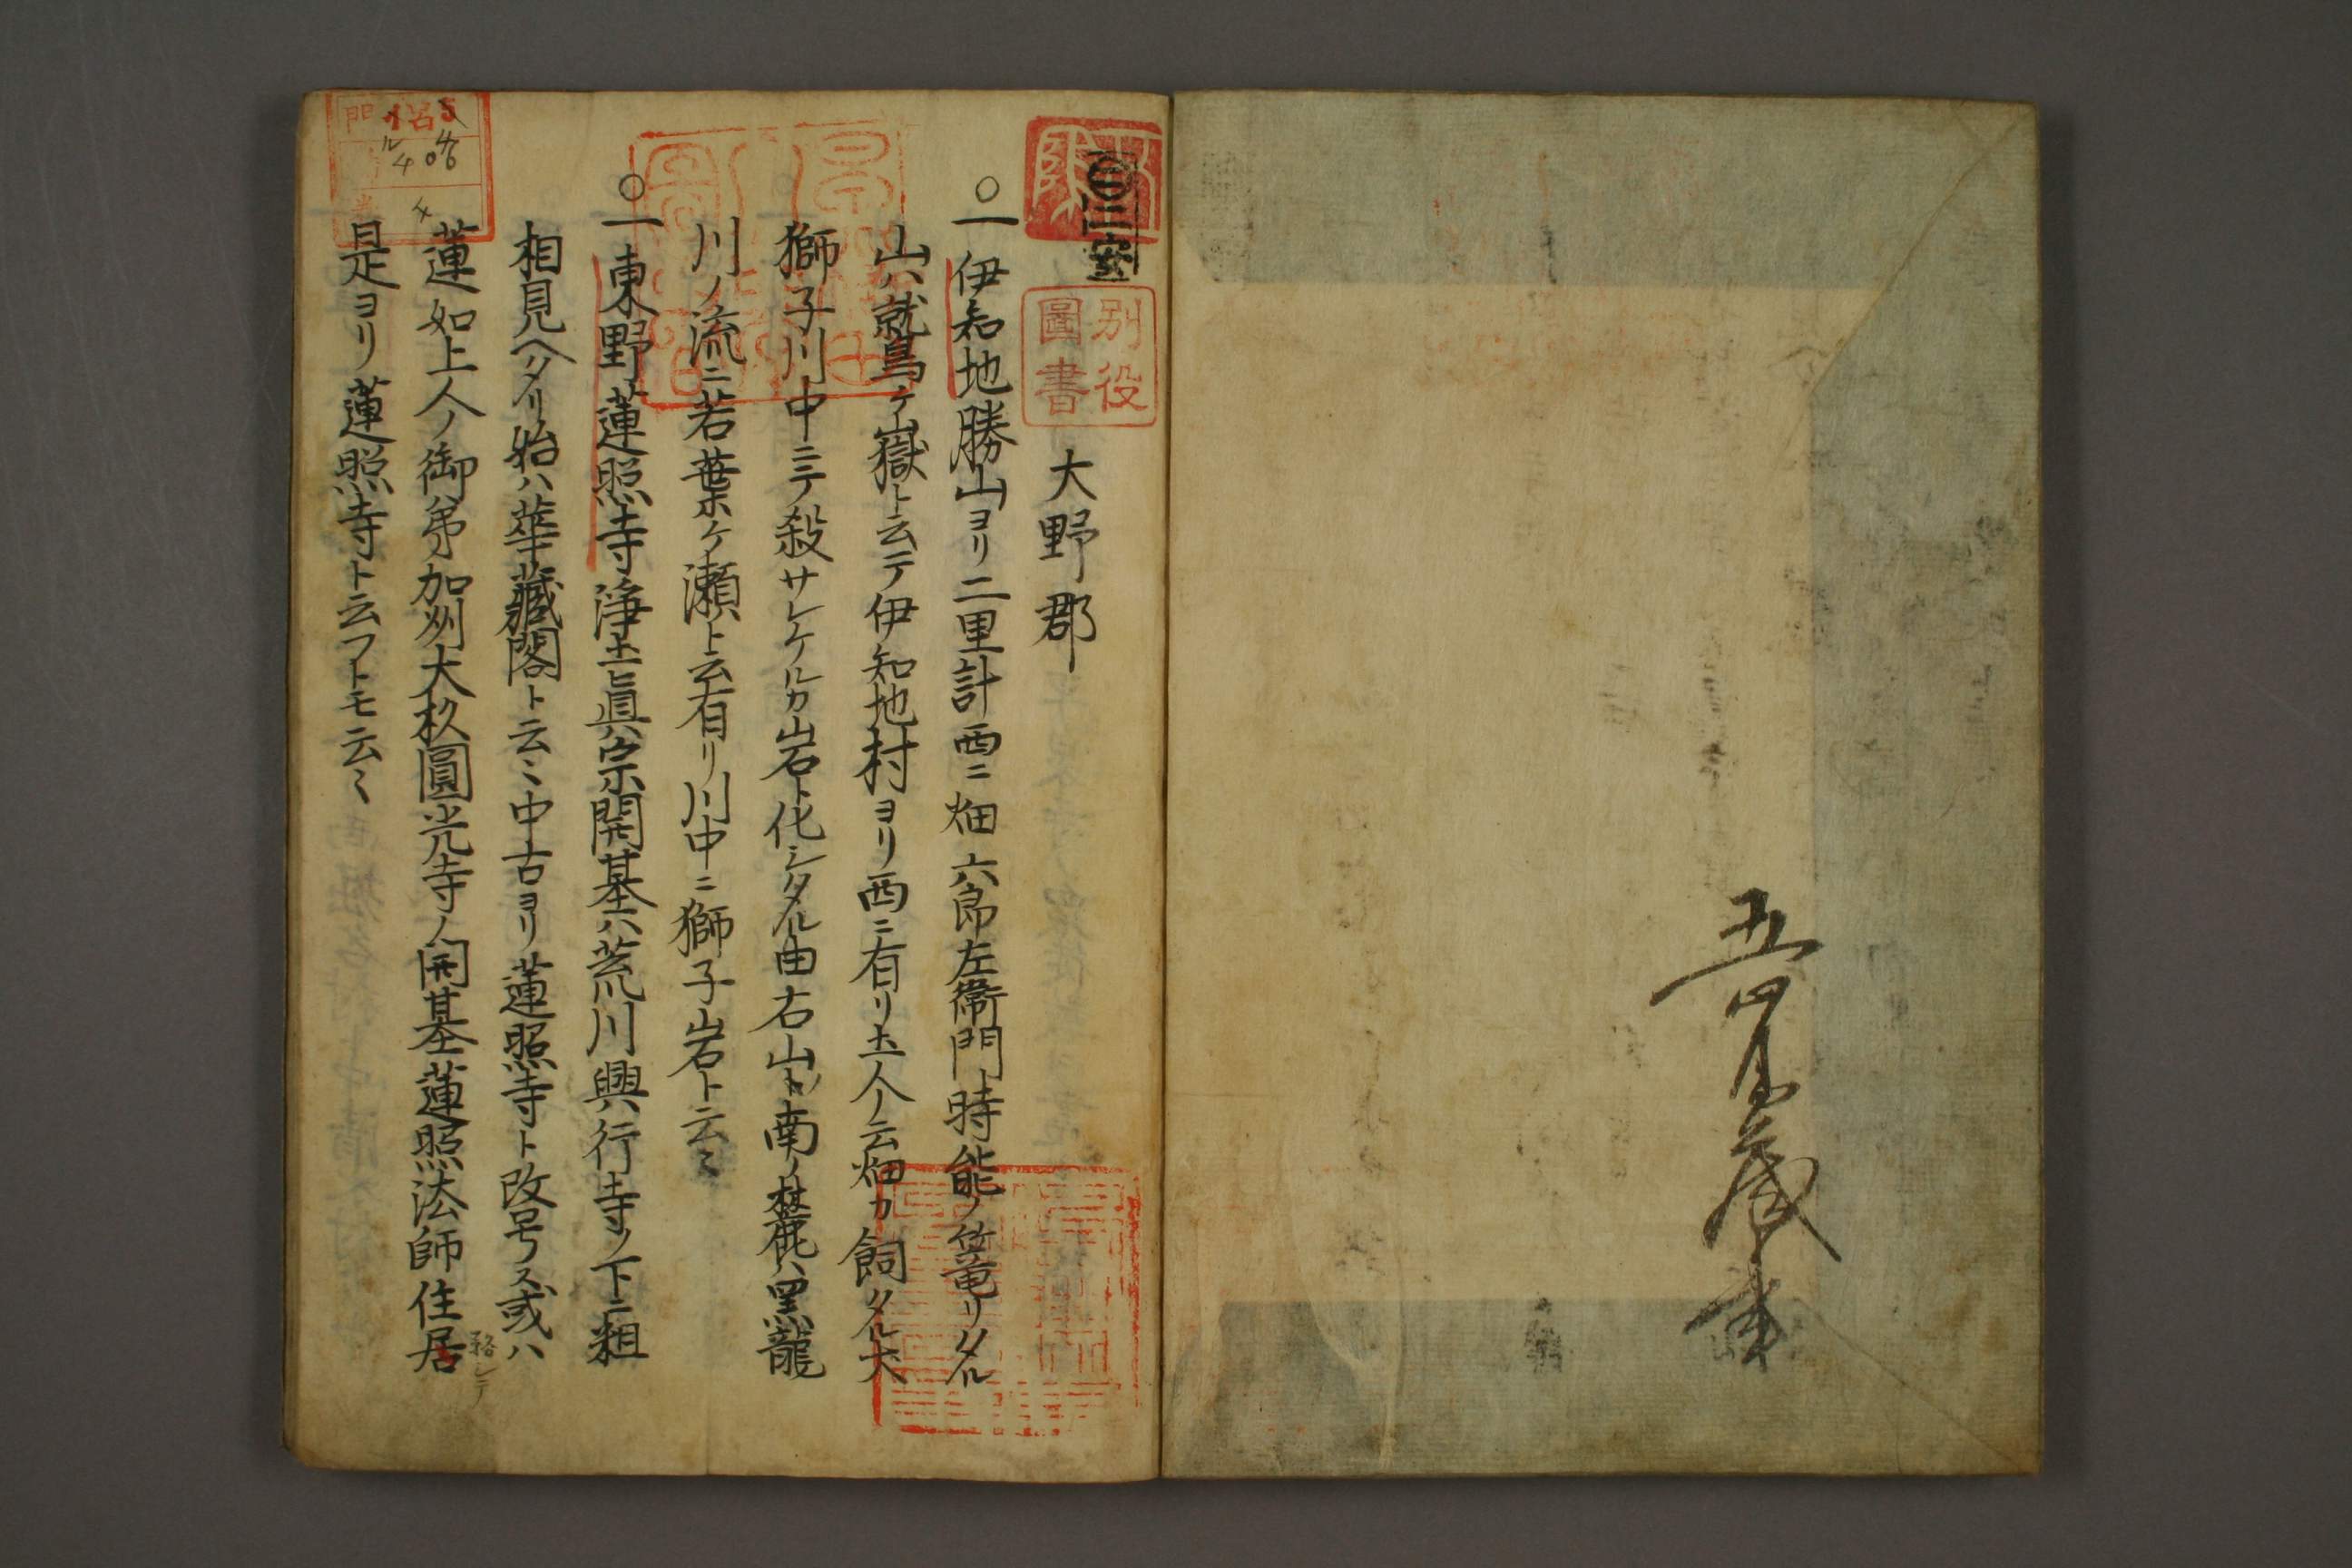 大野郡
別役
圖書
○一伊知地勝山ヨリ二里計西ニ畑六郎左衛門時能ノ篭リタル
山ハ鷲ケ嶽ト云テ伊知地村ヨリ西ニ有リ土人ノ云畑カ飼タル犬
獅子川中ニテ殺サレケルカ岩ト化シタル由右山ト南ノ麓ハ黒龍
川ノ流ニ若葉ホケ瀬ト云有リ川中ニ獅子岩ト云ミ
○一東野蓮照寺浄土真宗開基ハ荒川興行寺ノ下ニ粗
相見ヘタリ始ハ華藏閣ト云ミ中古ヨリ蓮照寺ト改号ス或ハ
蓮如上人ノ御弟加州大杉圓光寺ノ開基蓮照法師住居
是ヨリ蓮照寺ト云フトモ云ミ